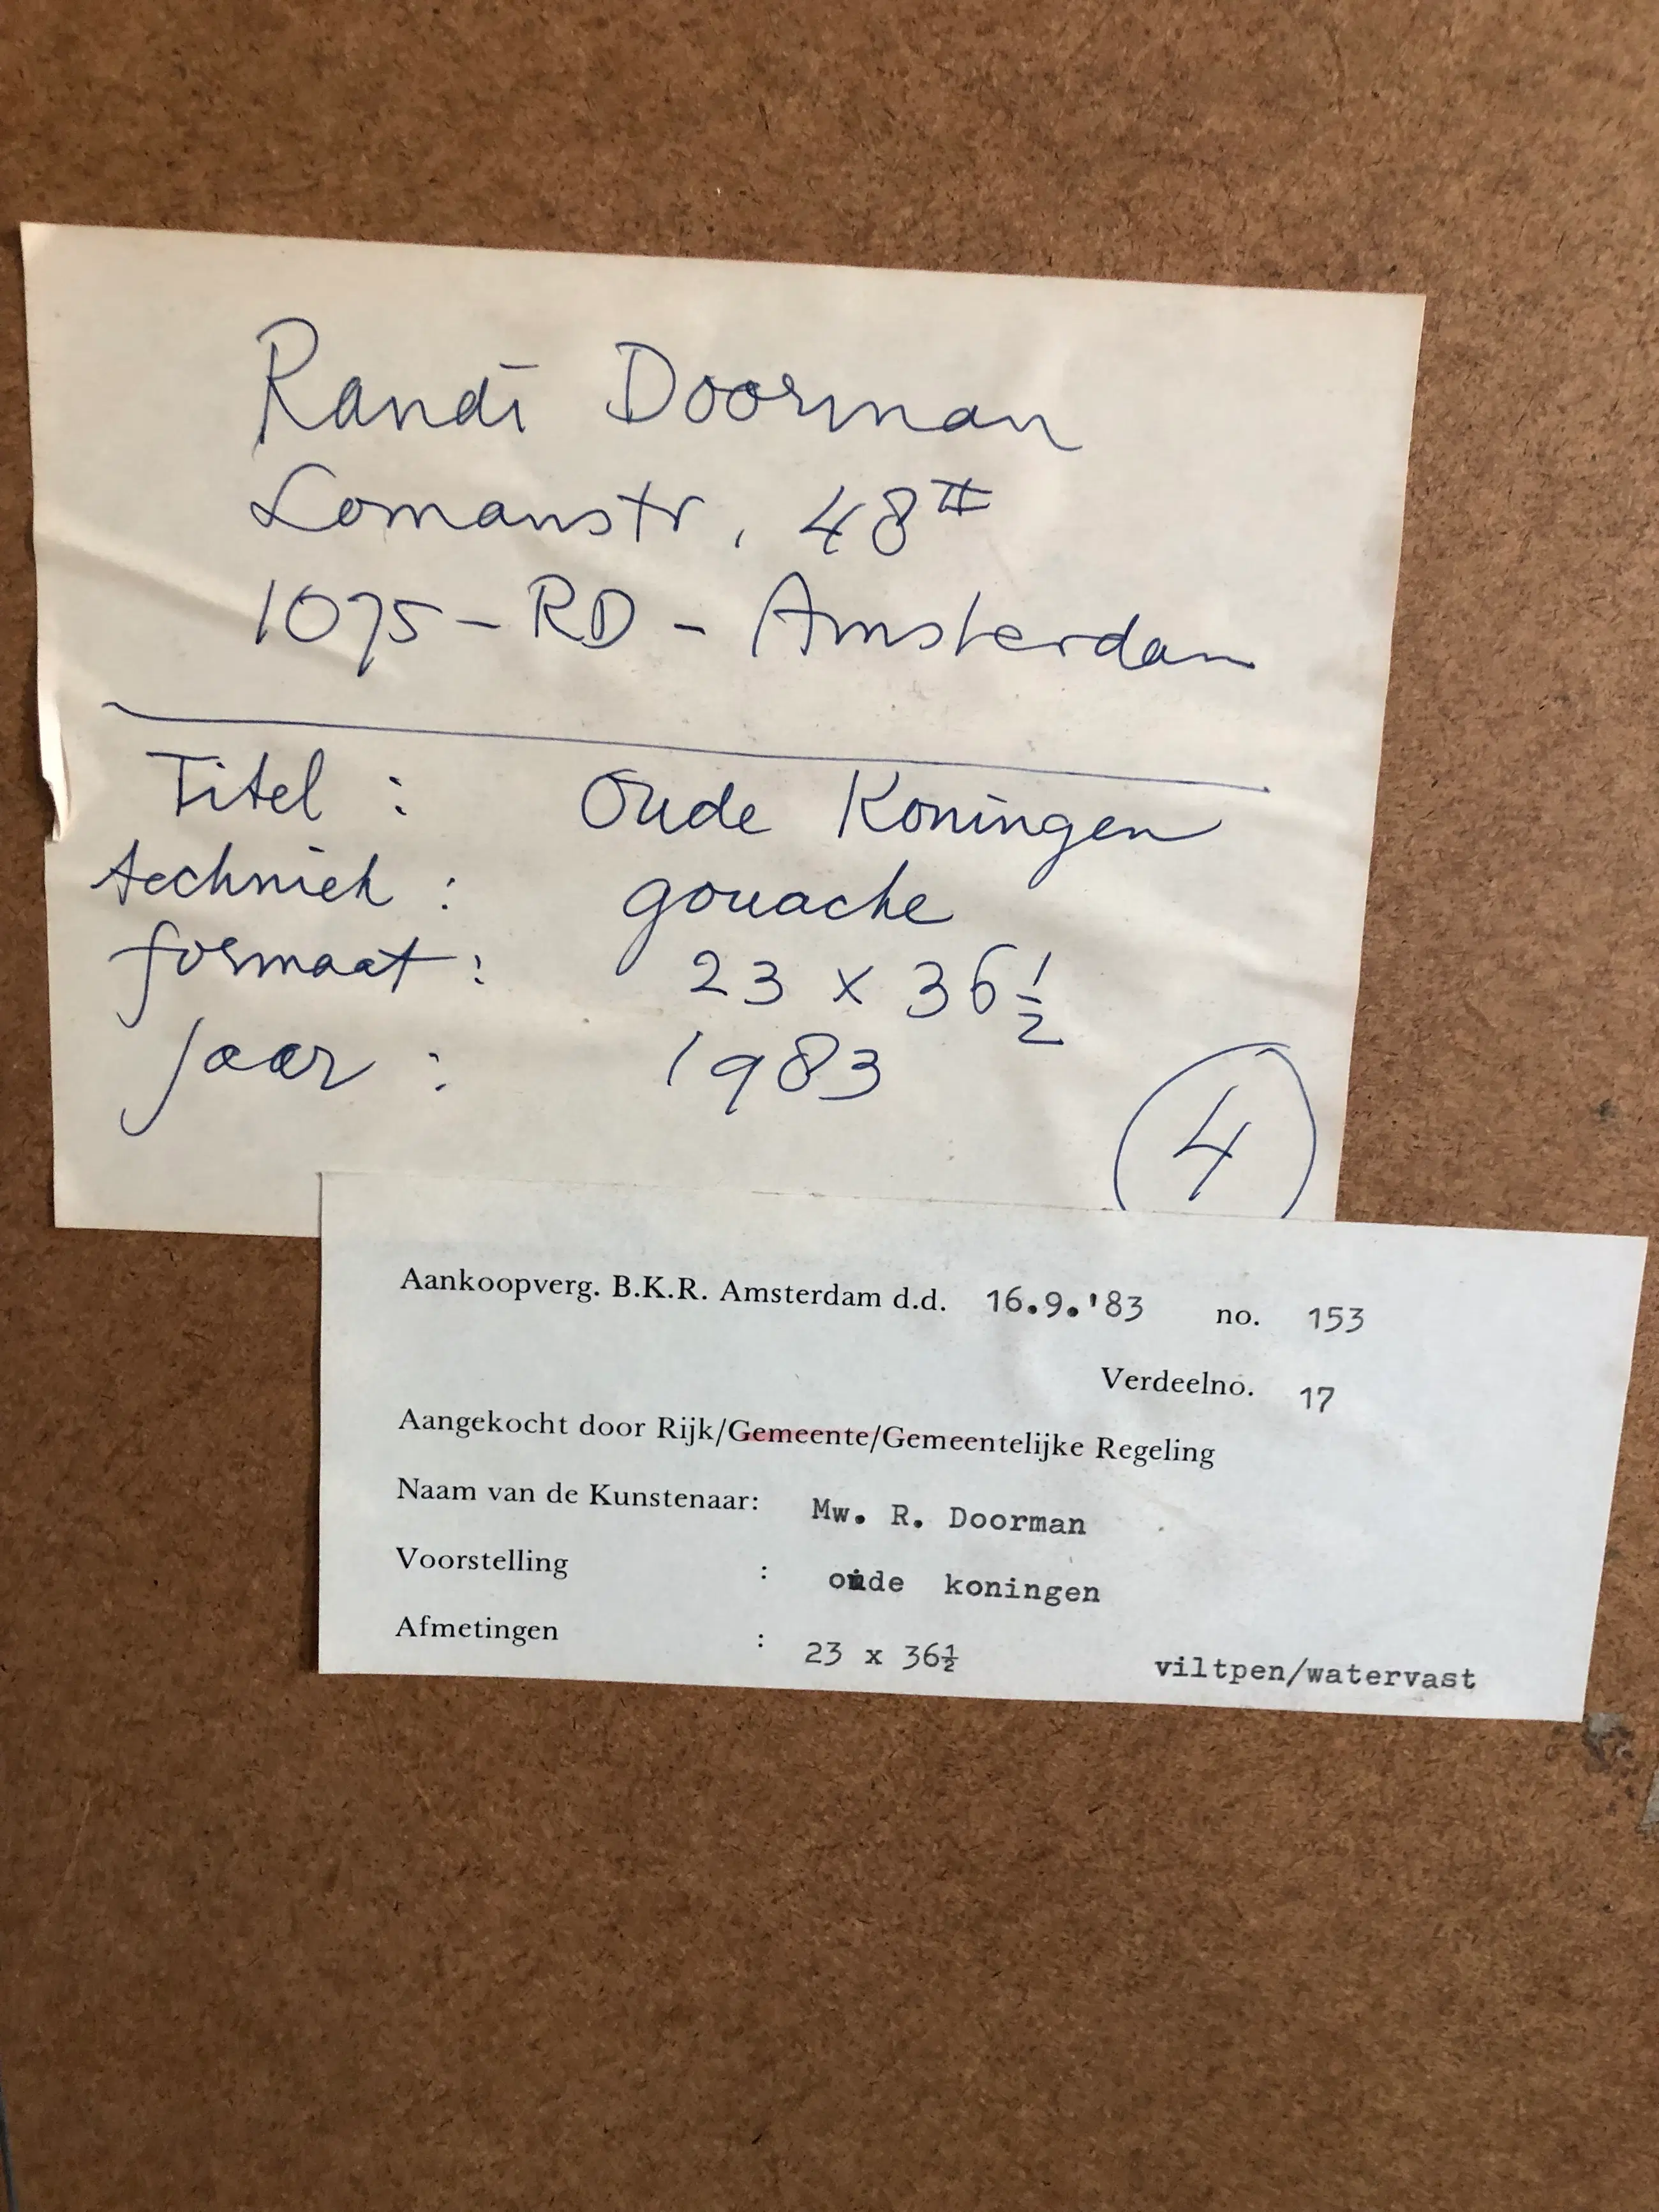 Randi Doorman
Lomanstr. 48 II
1075 - RD - Amsterdam
Titel : Oude Koningen
techniek : gouache
formaat : 23 x 36 1/2
jaar : 1983
4
Aankoopverg. B.K.R. Amsterdam d.d. 16.9.'83 no. 153
Verdeelno. 17
Aangekocht door Rijk/Gemeente/Gemeentelijke Regeling
Naam van de Kunstenaar: Mw. R. Doorman
Voorstelling : oude koningen
Afmetingen : 23 x 36½ viltpen/watervast